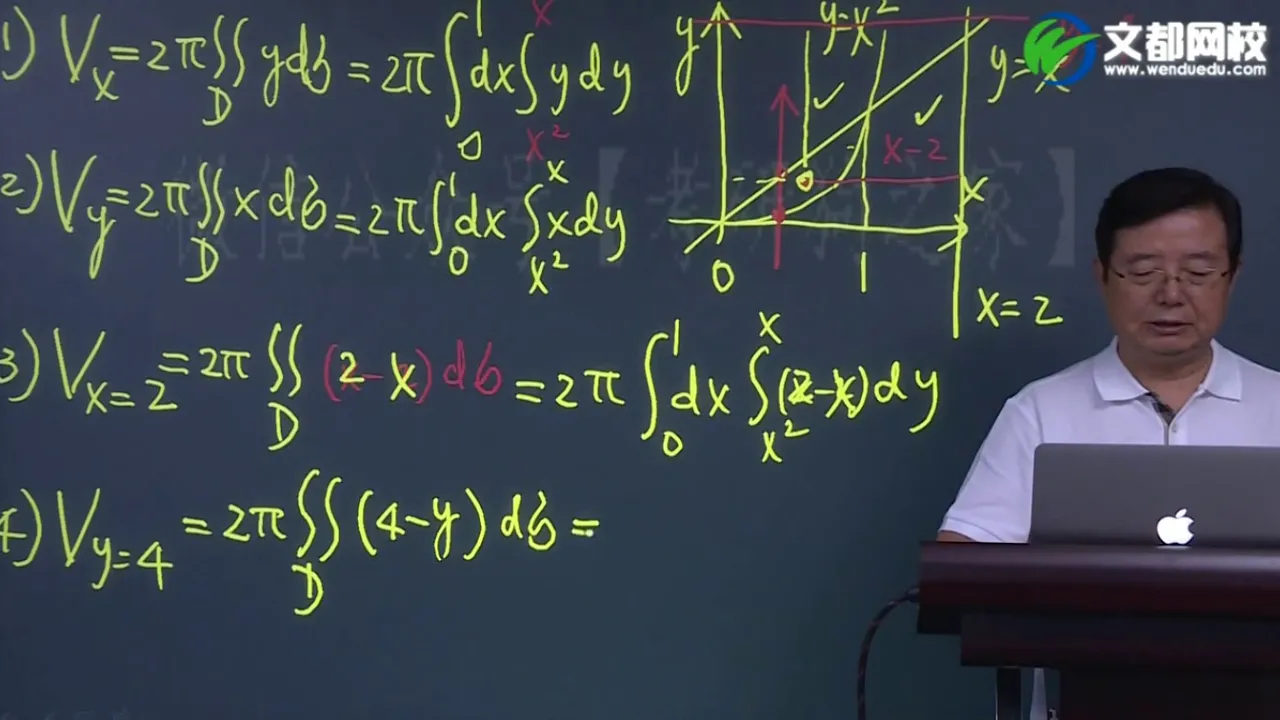 1) Vx = 2π∬_D y dσ = 2π∫_0^1 dx ∫_{x^2}^x y dy
2) Vy = 2π∬_D x dσ = 2π∫_0^1 dx ∫_{x^2}^x x dy
3) V_{x=2} = 2π∬_D (2-x) dσ = 2π∫_0^1 dx ∫_{x^2}^x (2-x) dy
4) V_{y=4} = 2π∬_D (4-y) dσ =
y
y=x^2
y=x
x-2
x
0
1
x=2
文都网校
www.wenduedu.com